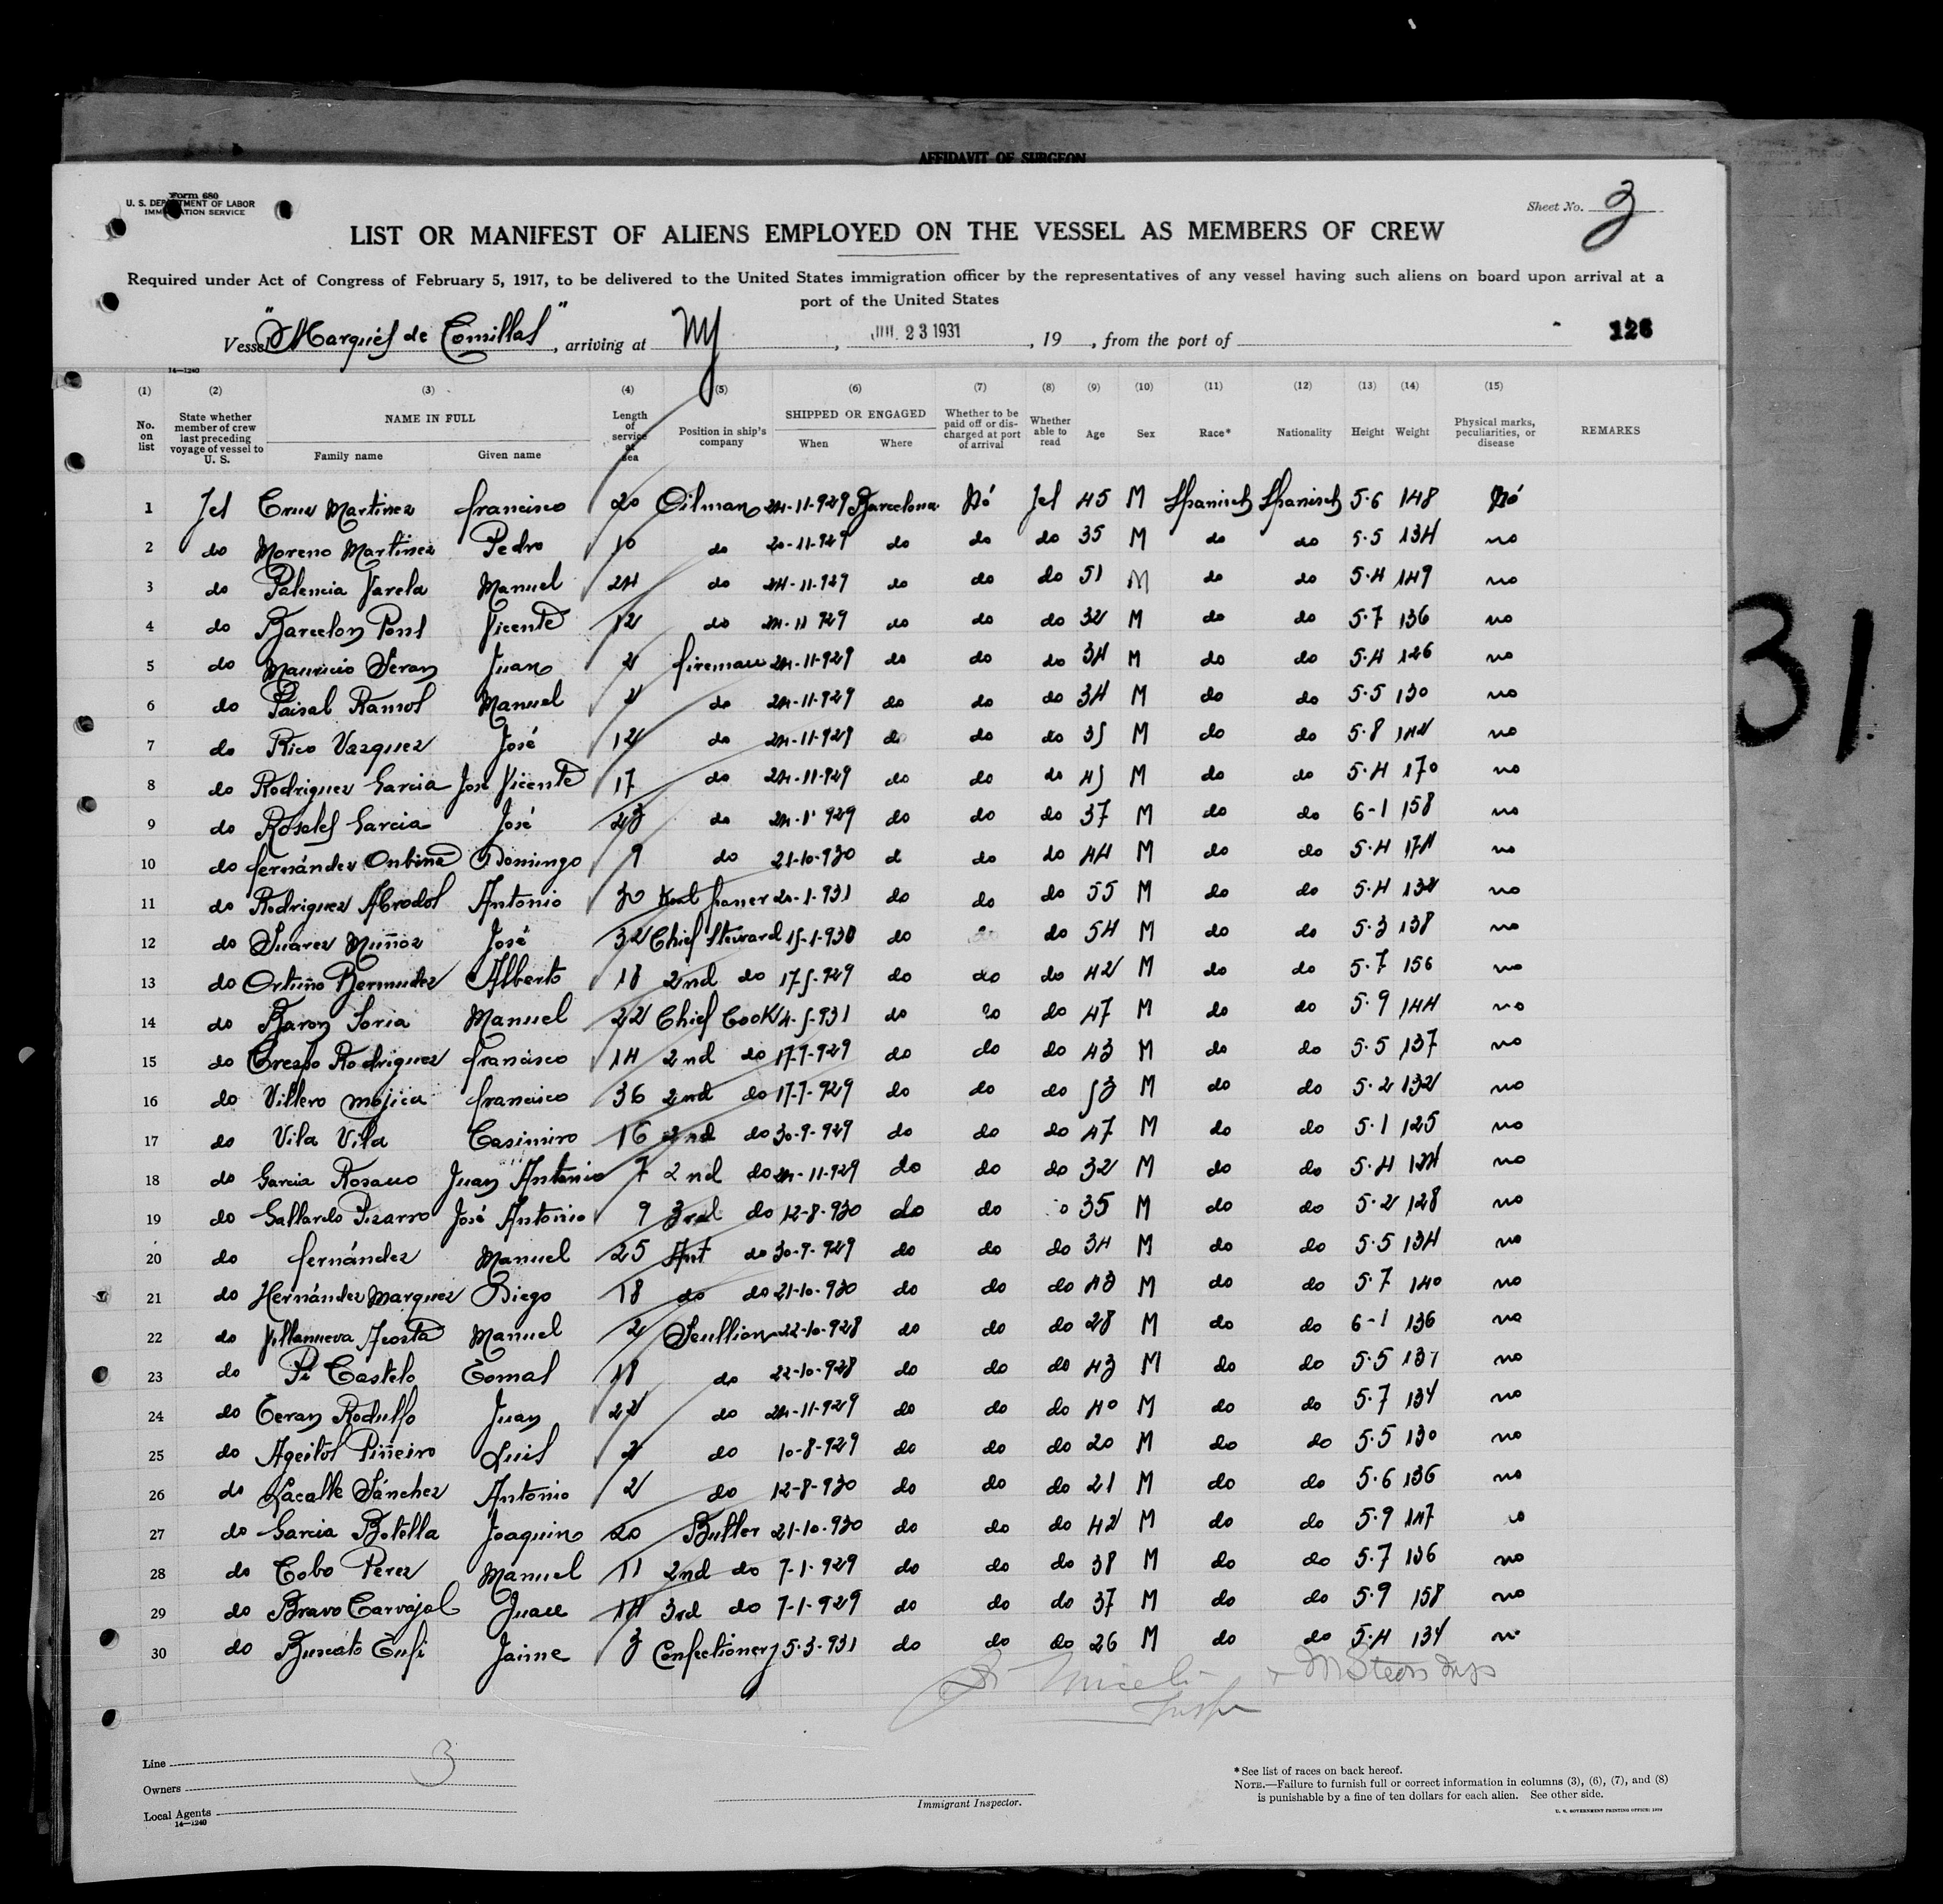 AFFIDAVIT OF SURGEON
Form 680
U. S. DEPARTMENT OF LABOR
IMMIGRATION SERVICE
Sheet No. 3
LIST OR MANIFEST OF ALIENS EMPLOYED ON THE VESSEL AS MEMBERS OF CREW
Required under Act of Congress of February 5, 1917, to be delivered to the United States immigration officer by the representatives of any vessel having such aliens on board upon arrival at a
port of the United States
Vessel "Marqués de Comillas", arriving at NY, JUL 23 1931, 19 , from the port of
126
14—1240
(1) (2) (3) (4) (5) (6) (7) (8) (9) (10) (11) (12) (13) (14) (15)
No. on list State whether member of crew last preceding voyage of vessel to U. S. NAME IN FULL Family name Given name Length of service at sea Position in ship's company SHIPPED OR ENGAGED When Where Whether to be paid off or discharged at port of arrival Whether able to read Age Sex Race* Nationality Height Weight Physical marks, peculiarities, or disease REMARKS
1 Yes Cruz Martinez francisco 20 Oilman 24-11-929 Barcelona Nó Yes 45 M Spanisch Spanisch 5·6 148 Nó
2 do Moreno Martinez Pedro 10 do 20-11-929 do do do 35 M do do 5·5 134 no
3 do Palencia Varela Manuel 24 do 24-11-929 do do do 51 M do do 5·4 149 no
4 do Barcelon Pons Vicente 12 do 24-11 929 do do do 32 M do do 5·7 136 no
5 do Mauricio Seran Juan 2 fireman 24-11-929 do do do 34 M do do 5·4 126 no
6 do Paisal Ramos Manuel 2 do 24-11-929 do do do 34 M do do 5·5 130 no
7 do Rico Vazquez José 12 do 24-11-929 do do do 35 M do do 5·8 142 no
8 do Rodriguez Garcia José Vicente 17 do 24-11-929 do do do 45 M do do 5·4 170 no
9 do Rosales Garcia José 23 do 24-11 929 do do do 37 M do do 6-1 158 no
10 do fernández Onbina Domingo 9 do 21-10-930 d do do 44 M do do 5·4 174 no
11 do Rodriguez Antonio 30 20-1-931 do do do 55 M do do 5·4 132 no
12 do Suarez Muñoz José 32 Chief Steward 15-1-930 do do do 54 M do do 5·3 138 no
13 do Ortuño Bermudez Alberto 18 2nd do 17-5-929 do do do 42 M do do 5·7 156 no
14 do Baron Soria Manuel 22 Chief Cook 4-5-931 do do do 47 M do do 5·9 144 no
15 do Crespo Rodriguez francisco 14 2nd do 17-7-929 do do do 43 M do do 5·5 137 no
16 do Villero Mojica francisco 36 2nd do 17-7-929 do do do 53 M do do 5·2 132 no
17 do Vila Vila Casimiro 16 2nd do 30-9-929 do do do 47 M do do 5·1 125 no
18 do Garcia Rosano Juan Antonio 7 2nd do 24-11-929 do do do 32 M do do 5·4 124 no
19 do Gallardo Pizarro José Antonio 9 3rd do 12-8-930 do do do 35 M do do 5·2 128 no
20 do fernández Manuel 25 do 30-9-929 do do do 34 M do do 5·5 134 no
21 do Hernández Marquez Diego 18 do do 21-10-930 do do do 43 M do do 5·7 140 no
22 do Villanueva Acosta Manuel 2 Scullion 22-10-928 do do do 28 M do do 6-1 136 no
23 do Pi Castelo Tomas 18 do 22-10-928 do do do 43 M do do 5·5 137 no
24 do Teran Rodulfo Juan 22 do 24-11-929 do do do 40 M do do 5·7 134 no
25 do Ageitos Piñeiro Luis 2 do 10-8-929 do do do 20 M do do 5·5 130 no
26 do Lacalle Sánchez Antonio 2 do 12-8-930 do do do 21 M do do 5·6 136 no
27 do Garcia Botella Joaquin 20 Butler 21-10-930 do do do 42 M do do 5·9 147 no
28 do Cobo Perez Manuel 11 2nd do 7-1-929 do do do 38 M do do 5·7 136 no
29 do Bravo Carvajal Juan 14 3rd do 7-1-929 do do do 37 M do do 5·9 158 no
30 do Buscato Jaime 3 Confectionery 5-3-931 do do do 26 M do do 5·4 134 no
31
Line
3
Owners
Local Agents
14—1240
Immigrant Inspector.
*See list of races on back hereof.
NOTE.—Failure to furnish full or correct information in columns (3), (6), (7), and (8)
is punishable by a fine of ten dollars for each alien. See other side.